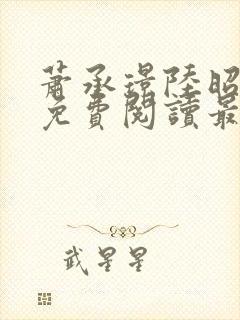 蕭承璟陸昭
免費閱讀最
武星星